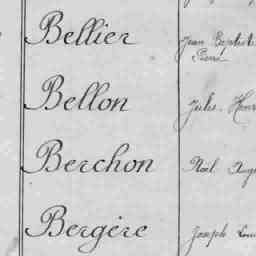 Bellier Jean Baptiste
Pierre
Bellon Jules Henri
Berchon Noël Aug
Bergère Joseph Loui